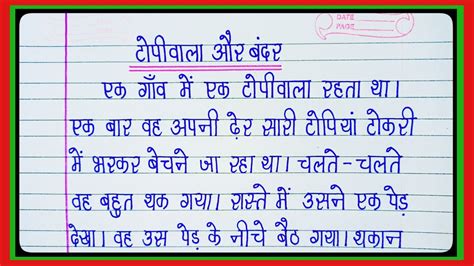 DATE
PAGE
टोपीवाला और बंदर
एक गाँव में एक टोपीवाला रहता था।
एक बार वह अपनी ढ़ेर सारी टोपियां टोकरी
में भरकर बेचने जा रहा था। चलते-चलते
वह बहुत थक गया। रास्ते में उसने एक पेड़
देखा। वह उस पेड़ के नीचे बैठ गया। थकान